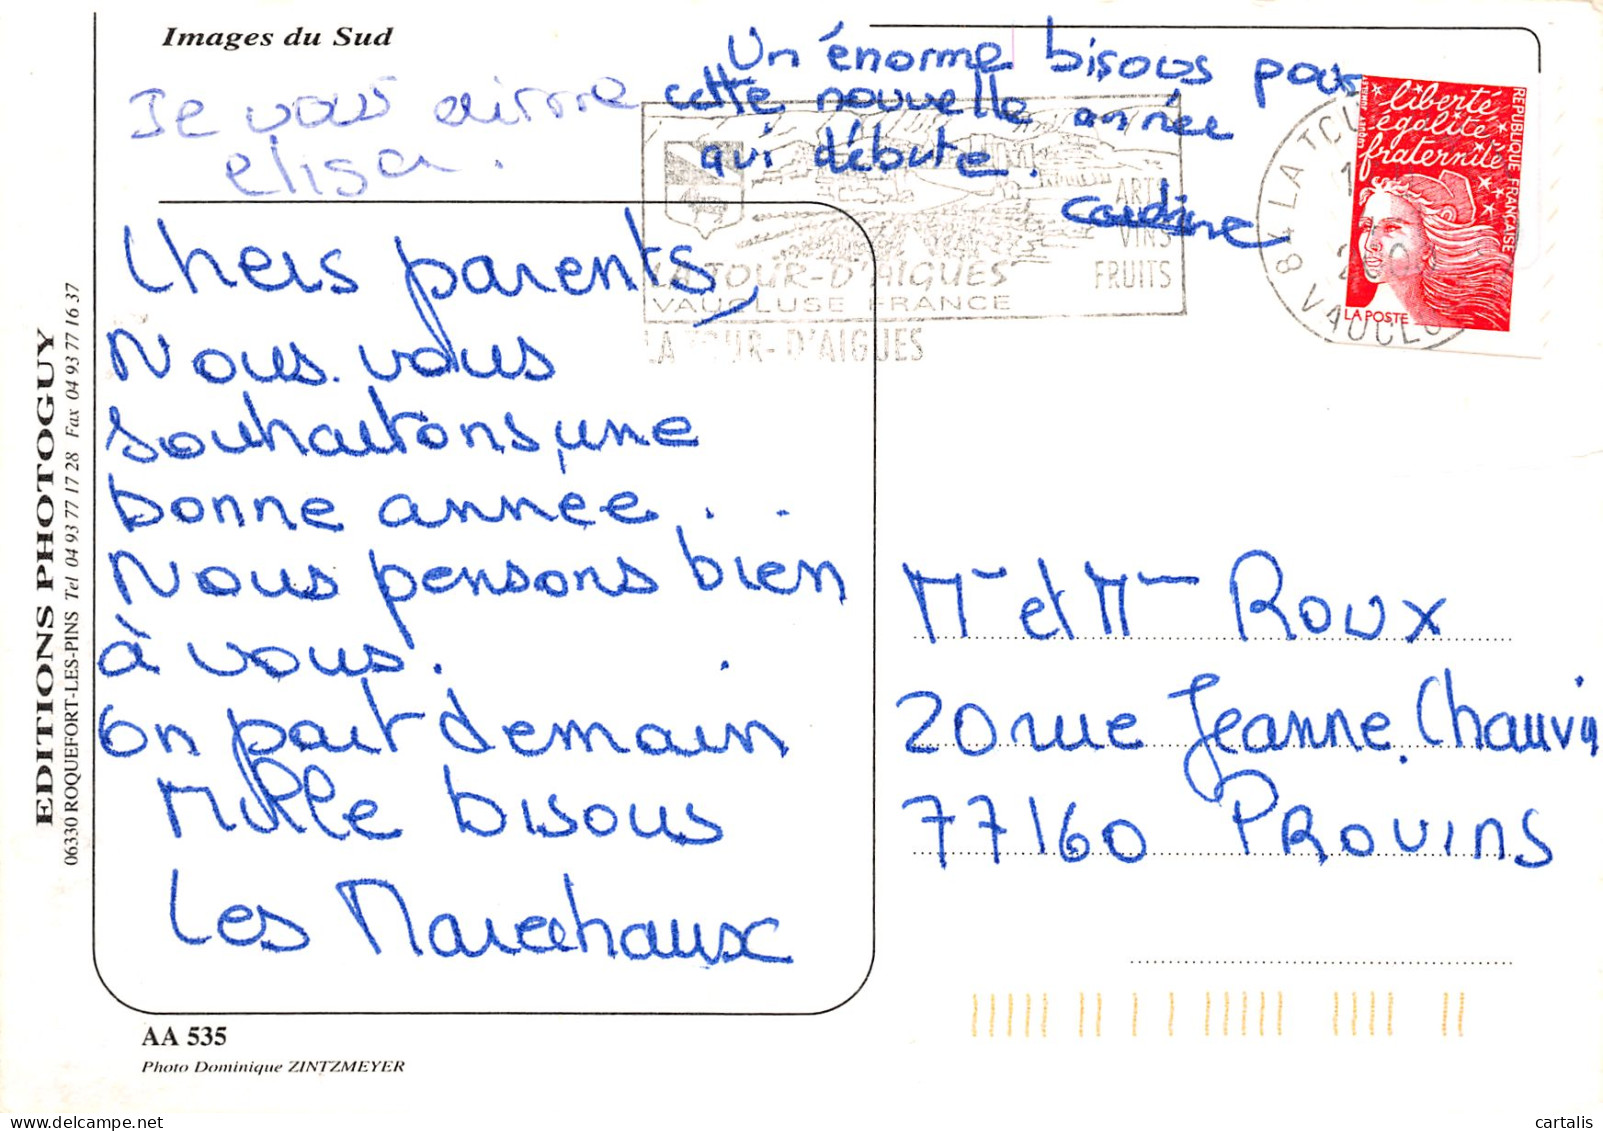 Images du Sud
Je vous aisme
elisa.
Un énorme bisous pour
cette nouvelle année
qui débute.
Chers parents,
Nous vous
souhaitons, une
bonne année..
Nous pensons bien
à vous.
On part demain
Mille bisous
Les Marechaux
ARTS
VINS
FRUITS
LA TOUR-D'AIGUES
VAUCLUSE FRANCE
LA TOUR-D'AIGUES
84 LA TOUR
VAUCLUSE
liberté
égalité
fraternité
RÉPUBLIQUE FRANÇAISE
LA POSTE
Mr et Mme Roux
20 rue Jeanne Chauvin
77160 PROVINS
EDITIONS PHOTOGUY
06330 ROQUEFORT-LES-PINS Tel 04 93 77 17 28 Fax 04 93 77 16 37
AA 535
Photo Dominique ZINTZMEYER
cartalis